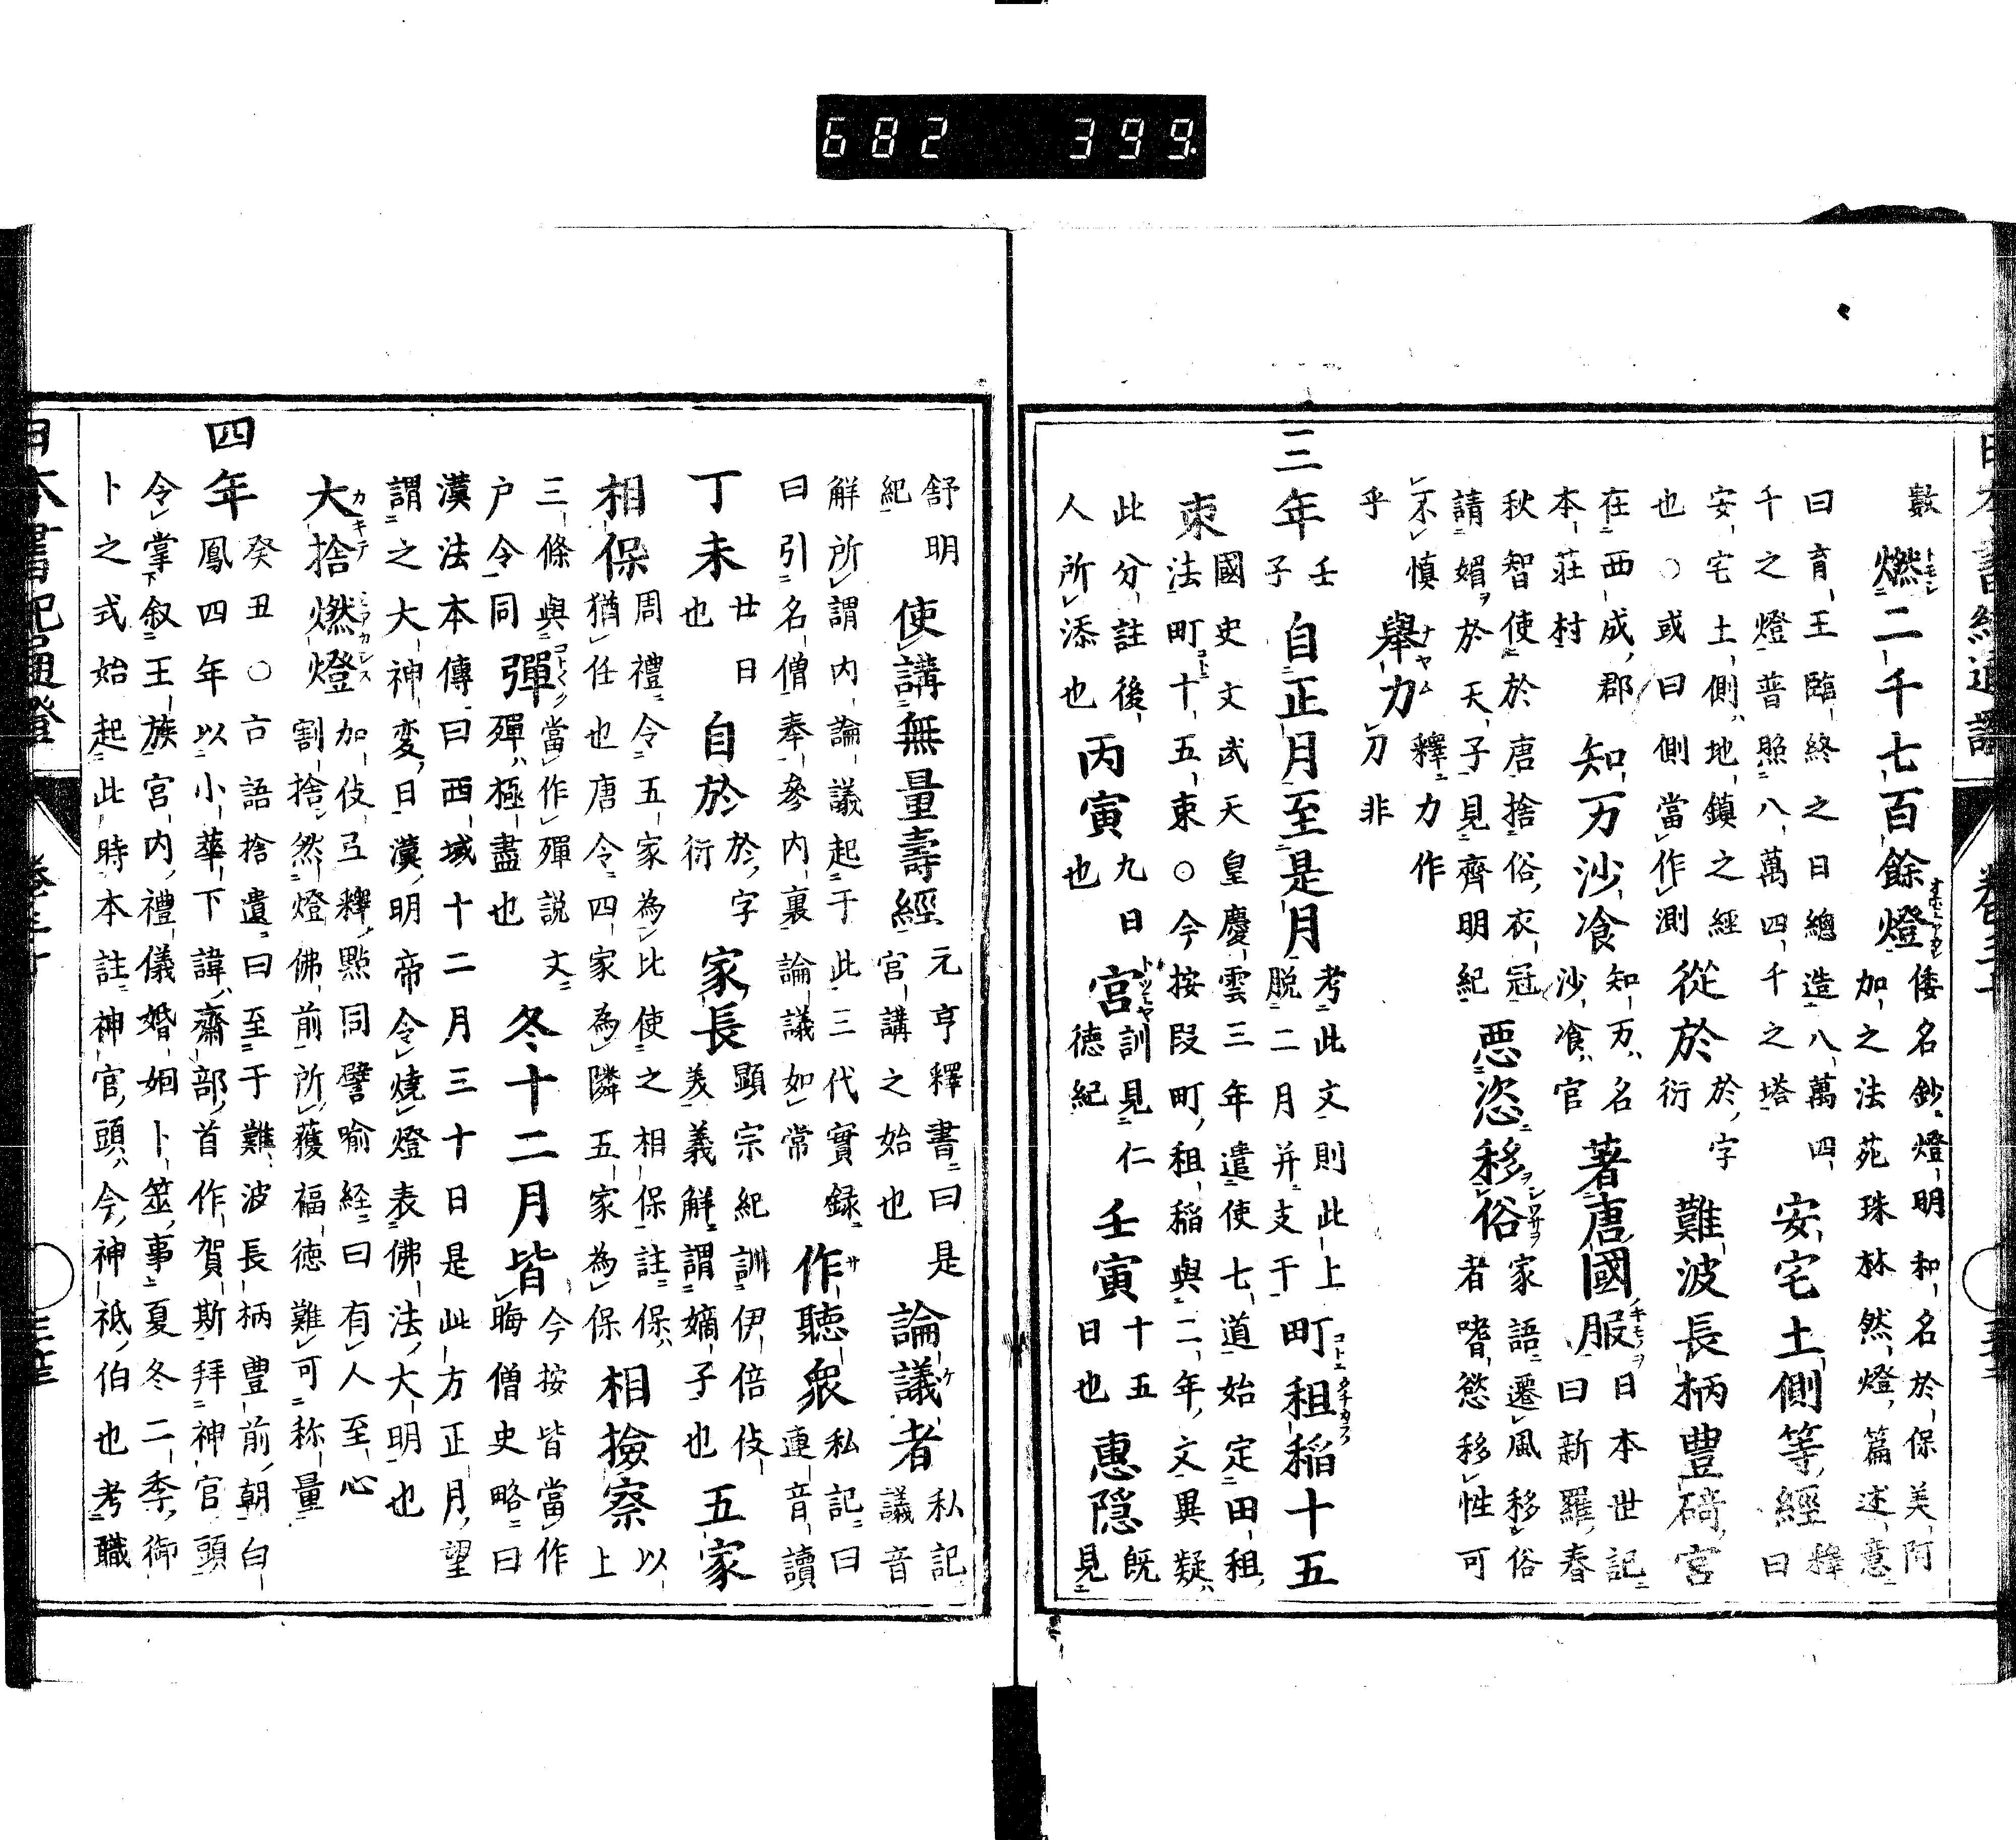 682 399
數
燃二千七百餘燈
倭名鈔燈明和名於保美阿
加之法苑珠林然燈篇述意
曰育王臨終之日總造八萬四
千之燈普照八萬四千之塔
安宅土側等經
釋
曰
安宅土側地鎮之經
也○或曰側當作測
從於
於字
衍
難波長柄豊碕宮
在西成郡
本荘村
知万沙飡
知万名
沙飡官
著唐國服
日本世記
曰新羅春
秋智使於唐捨俗衣冠
請媚於天子見齊明紀
惡恣移俗
家語遷風移俗
者嗜慾移性可
不慎
乎
舉力
釋力作
刀非
三年
壬
子
自正月至是月
考此文則此上
脱二月并支干
町租稲十五
束
國史文武天皇慶雲三年遣使七道始定田租
法町十五束○今按段町租稲與二年文異疑
此分註後
人所添也
丙寅
九日
也
宮
訓見仁
德紀
壬寅
十五
日也
惠隠
既
見
舒明
紀
使講無量壽經
元亨釋書曰是
宮講之始也
論議者
私記
議音
解所謂内論議起于此三代實録
曰引名僧奉參内裏論議如常
作聽衆
私記曰
連音讀
丁未
廿日
也
自於
於字
衍
家長
顯宗紀訓伊倍伎
美義解謂嫡子也
五家
相保
周禮令五家為比使之相保註保
猶任也唐令四家為隣五家為保
相撿察
以
上
三條與
户令同
彈
當作殫説文
殫極盡也
冬十二月皆
今按皆當作
晦僧史略曰
漢法本傳曰西域十二月三十日是此方正月望
謂之大神変日漢明帝令燒燈表佛法大明也
大捨燃燈
加伎弖釋點同譬喻経曰有人至心
割捨然燈佛前所獲福德難可称量
四年
癸丑○古語捨遺曰至于難波長柄豊前朝白
鳳四年以小華下諱齋部首作賀斯拜神官頭
令掌叙王族宮内禮儀婚姻卜筮事夏冬二季御
卜之式始起此時本註神官頭今神祇伯也考職